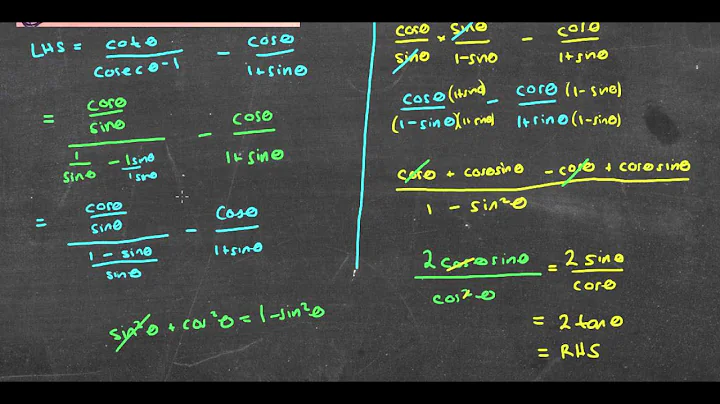 LHS = cotθ/(cosecθ-1) - cosθ/(1+sinθ)
= (cosθ/sinθ)/(1/sinθ - 1sinθ/1sinθ) - cosθ/(1+sinθ)
= (cosθ/sinθ)/((1-sinθ)/sinθ) - cosθ/(1+sinθ)
sin²θ + cos²θ = 1-sin²θ
cosθ/sinθ × sinθ/(1-sinθ) - cosθ/(1+sinθ)
cosθ(1+sinθ)/(1-sinθ)(1+sinθ) - cosθ(1-sinθ)/1+sinθ(1-sinθ)
(cosθ + cosθsinθ - cosθ + cosθsinθ)/(1 - sin²θ)
2cosθsinθ/cos²θ = 2sinθ/cosθ
= 2tanθ
= RHS